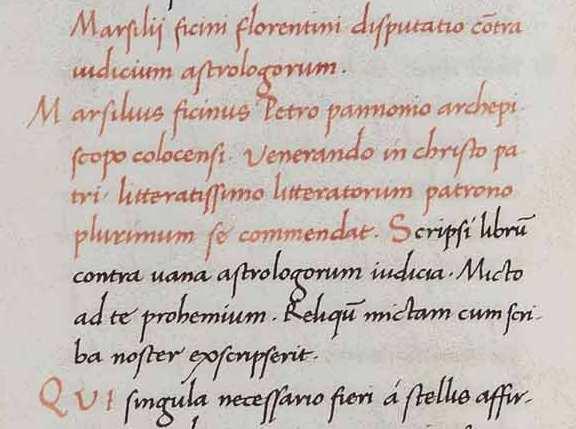 Marsilij ficini florentini disputatio cōtra
iudicium astrologorum.
Marsilius ficinus Petro pannonio archepi
scopo colocensi. Venerando in christo pa
tri. litteratissimo litteratorum patrono
plurimum se commendat. Scripsi librū
contra uana astrologorum iudicia. Micto
ad te prohemium. Reliqū mictam cum scri-
ba noster exscripserit.
QVI singula necessario fieri á stellis affir-